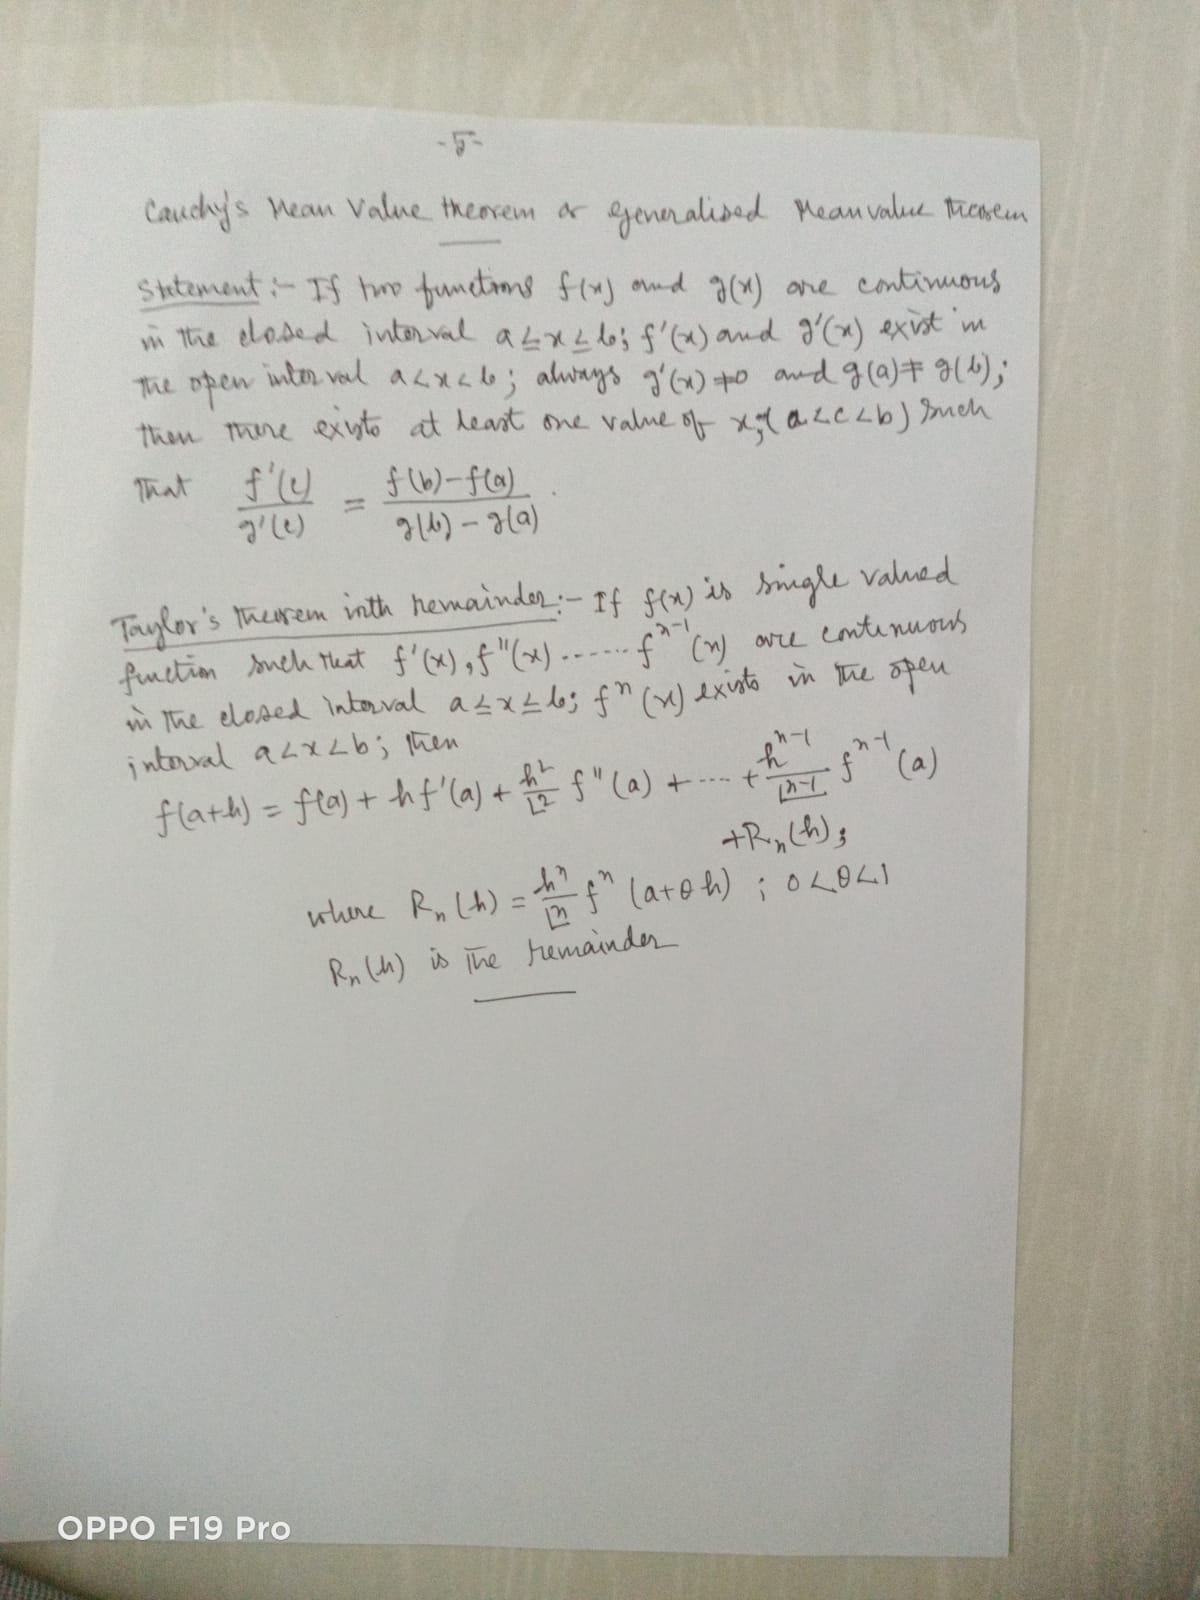 -5-
Cauchy's Mean Value theorem or generalised Mean value theorem
Statement :- If two functions f(x) and g(x) are continuous
in the closed interval a≤x≤b; f'(x) and g'(x) exist in
the open interval a<x<b; always g'(x)≠0 and g(a)≠g(b);
then there exists at least one value of x, (a<c<b) such
that f'(c)/g'(c) = f(b)-f(a)/g(b)-g(a).
Taylor's theorem with remainder :- If f(x) is single valued
function such that f'(x), f''(x) ------ fⁿ⁻¹(x) are continuous
in the closed interval a≤x≤b; fⁿ(x) exists in the open
interval a<x<b; then
f(a+h) = f(a) + hf'(a) + h²/⌊2 f''(a) + ---- + hⁿ⁻¹/⌊n-1 fⁿ⁻¹(a)
+Rₙ(h);
where Rₙ(h) = hⁿ/⌊n fⁿ(a+θh) ; 0<θ<1
Rₙ(h) is the remainder
OPPO F19 Pro